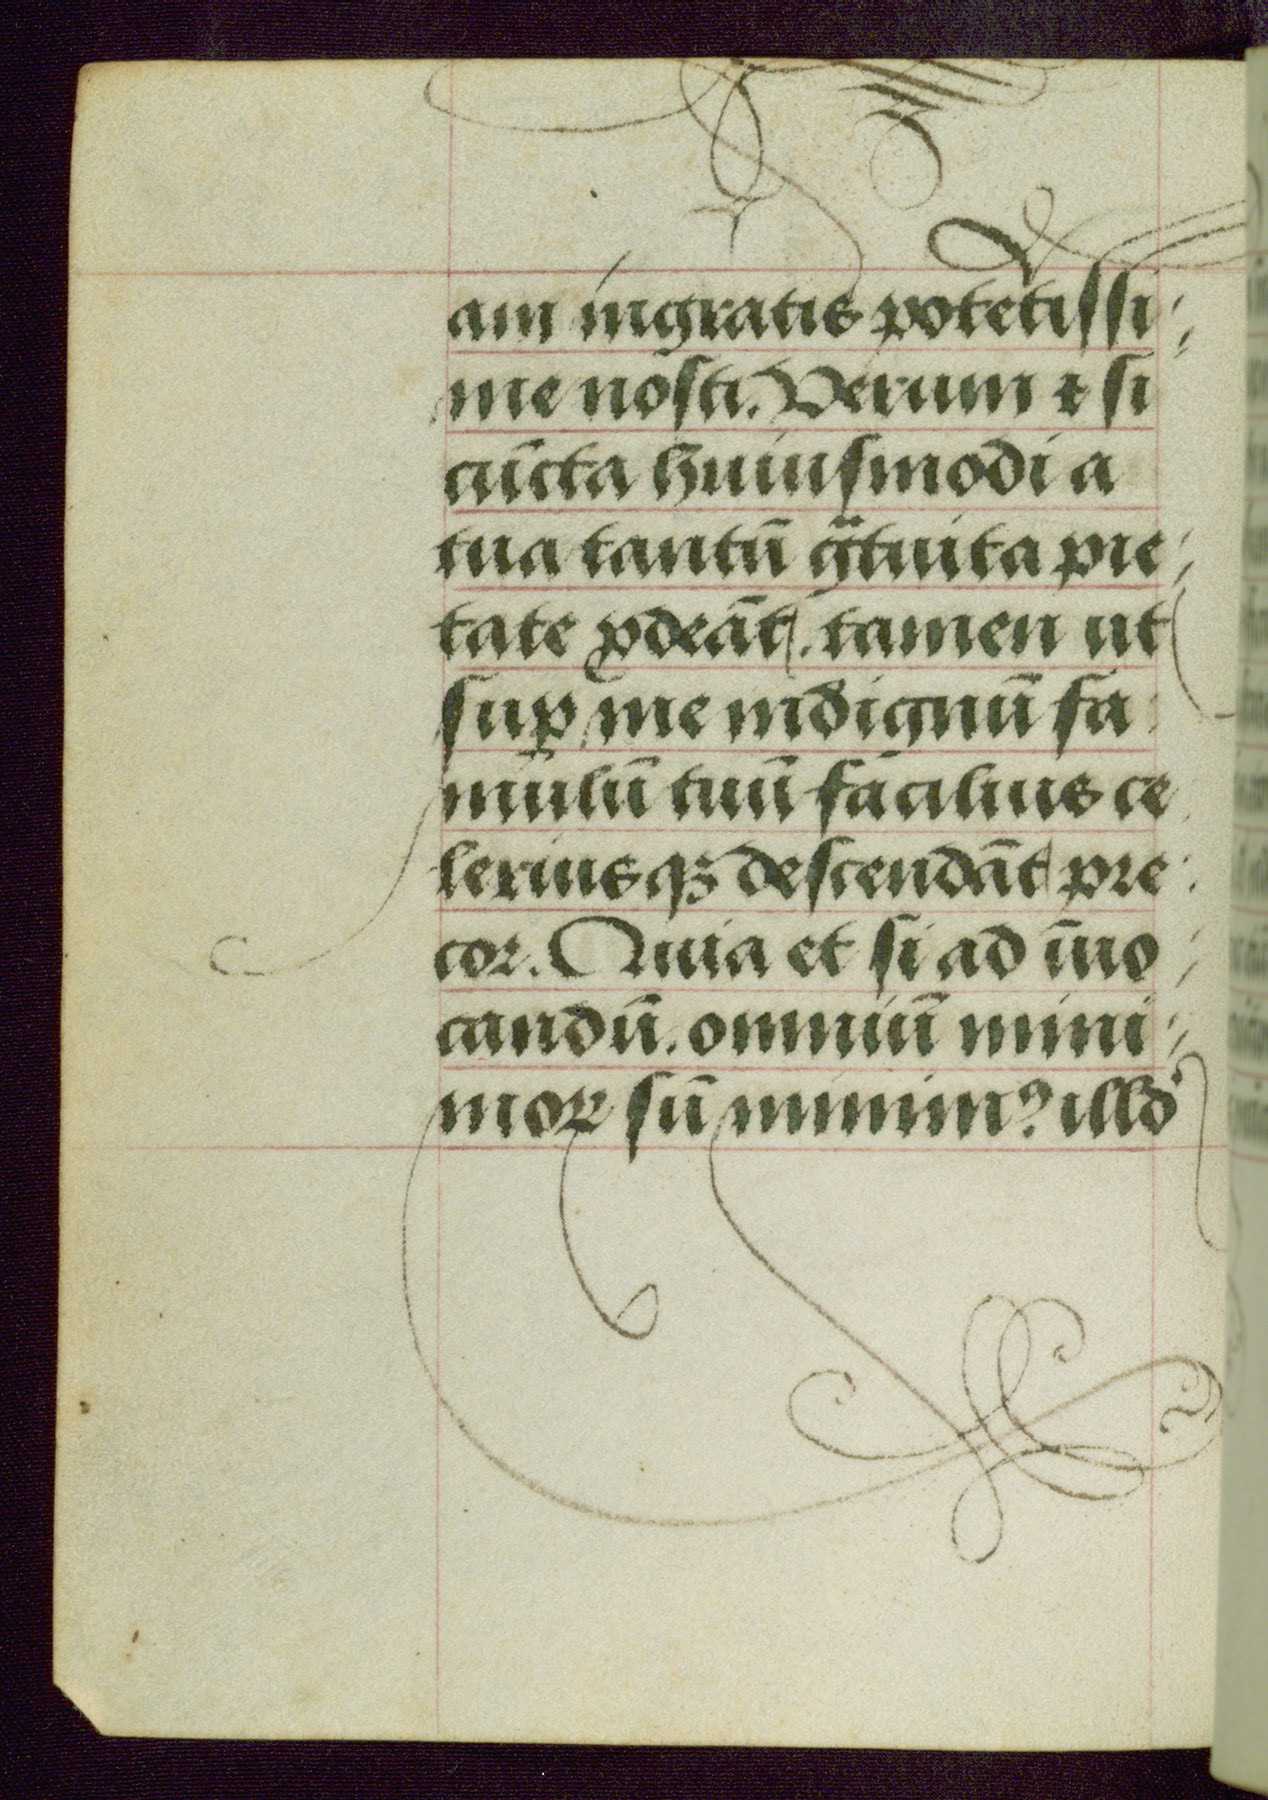 am ingratis potētissi-
me nosti. Verum ⁊ si
cūcta huiusmodi a
tua tantū gᵃtuita pie-
tate ꝓdeāt. tamen ut
suꝑ me indignū fa
mulū tuū facilius ce
leriusqꝫ descendāt pre
cor. Quia et si ad īuo-
candū. omniū mini-
moꝝ sū minimꝰ illd'